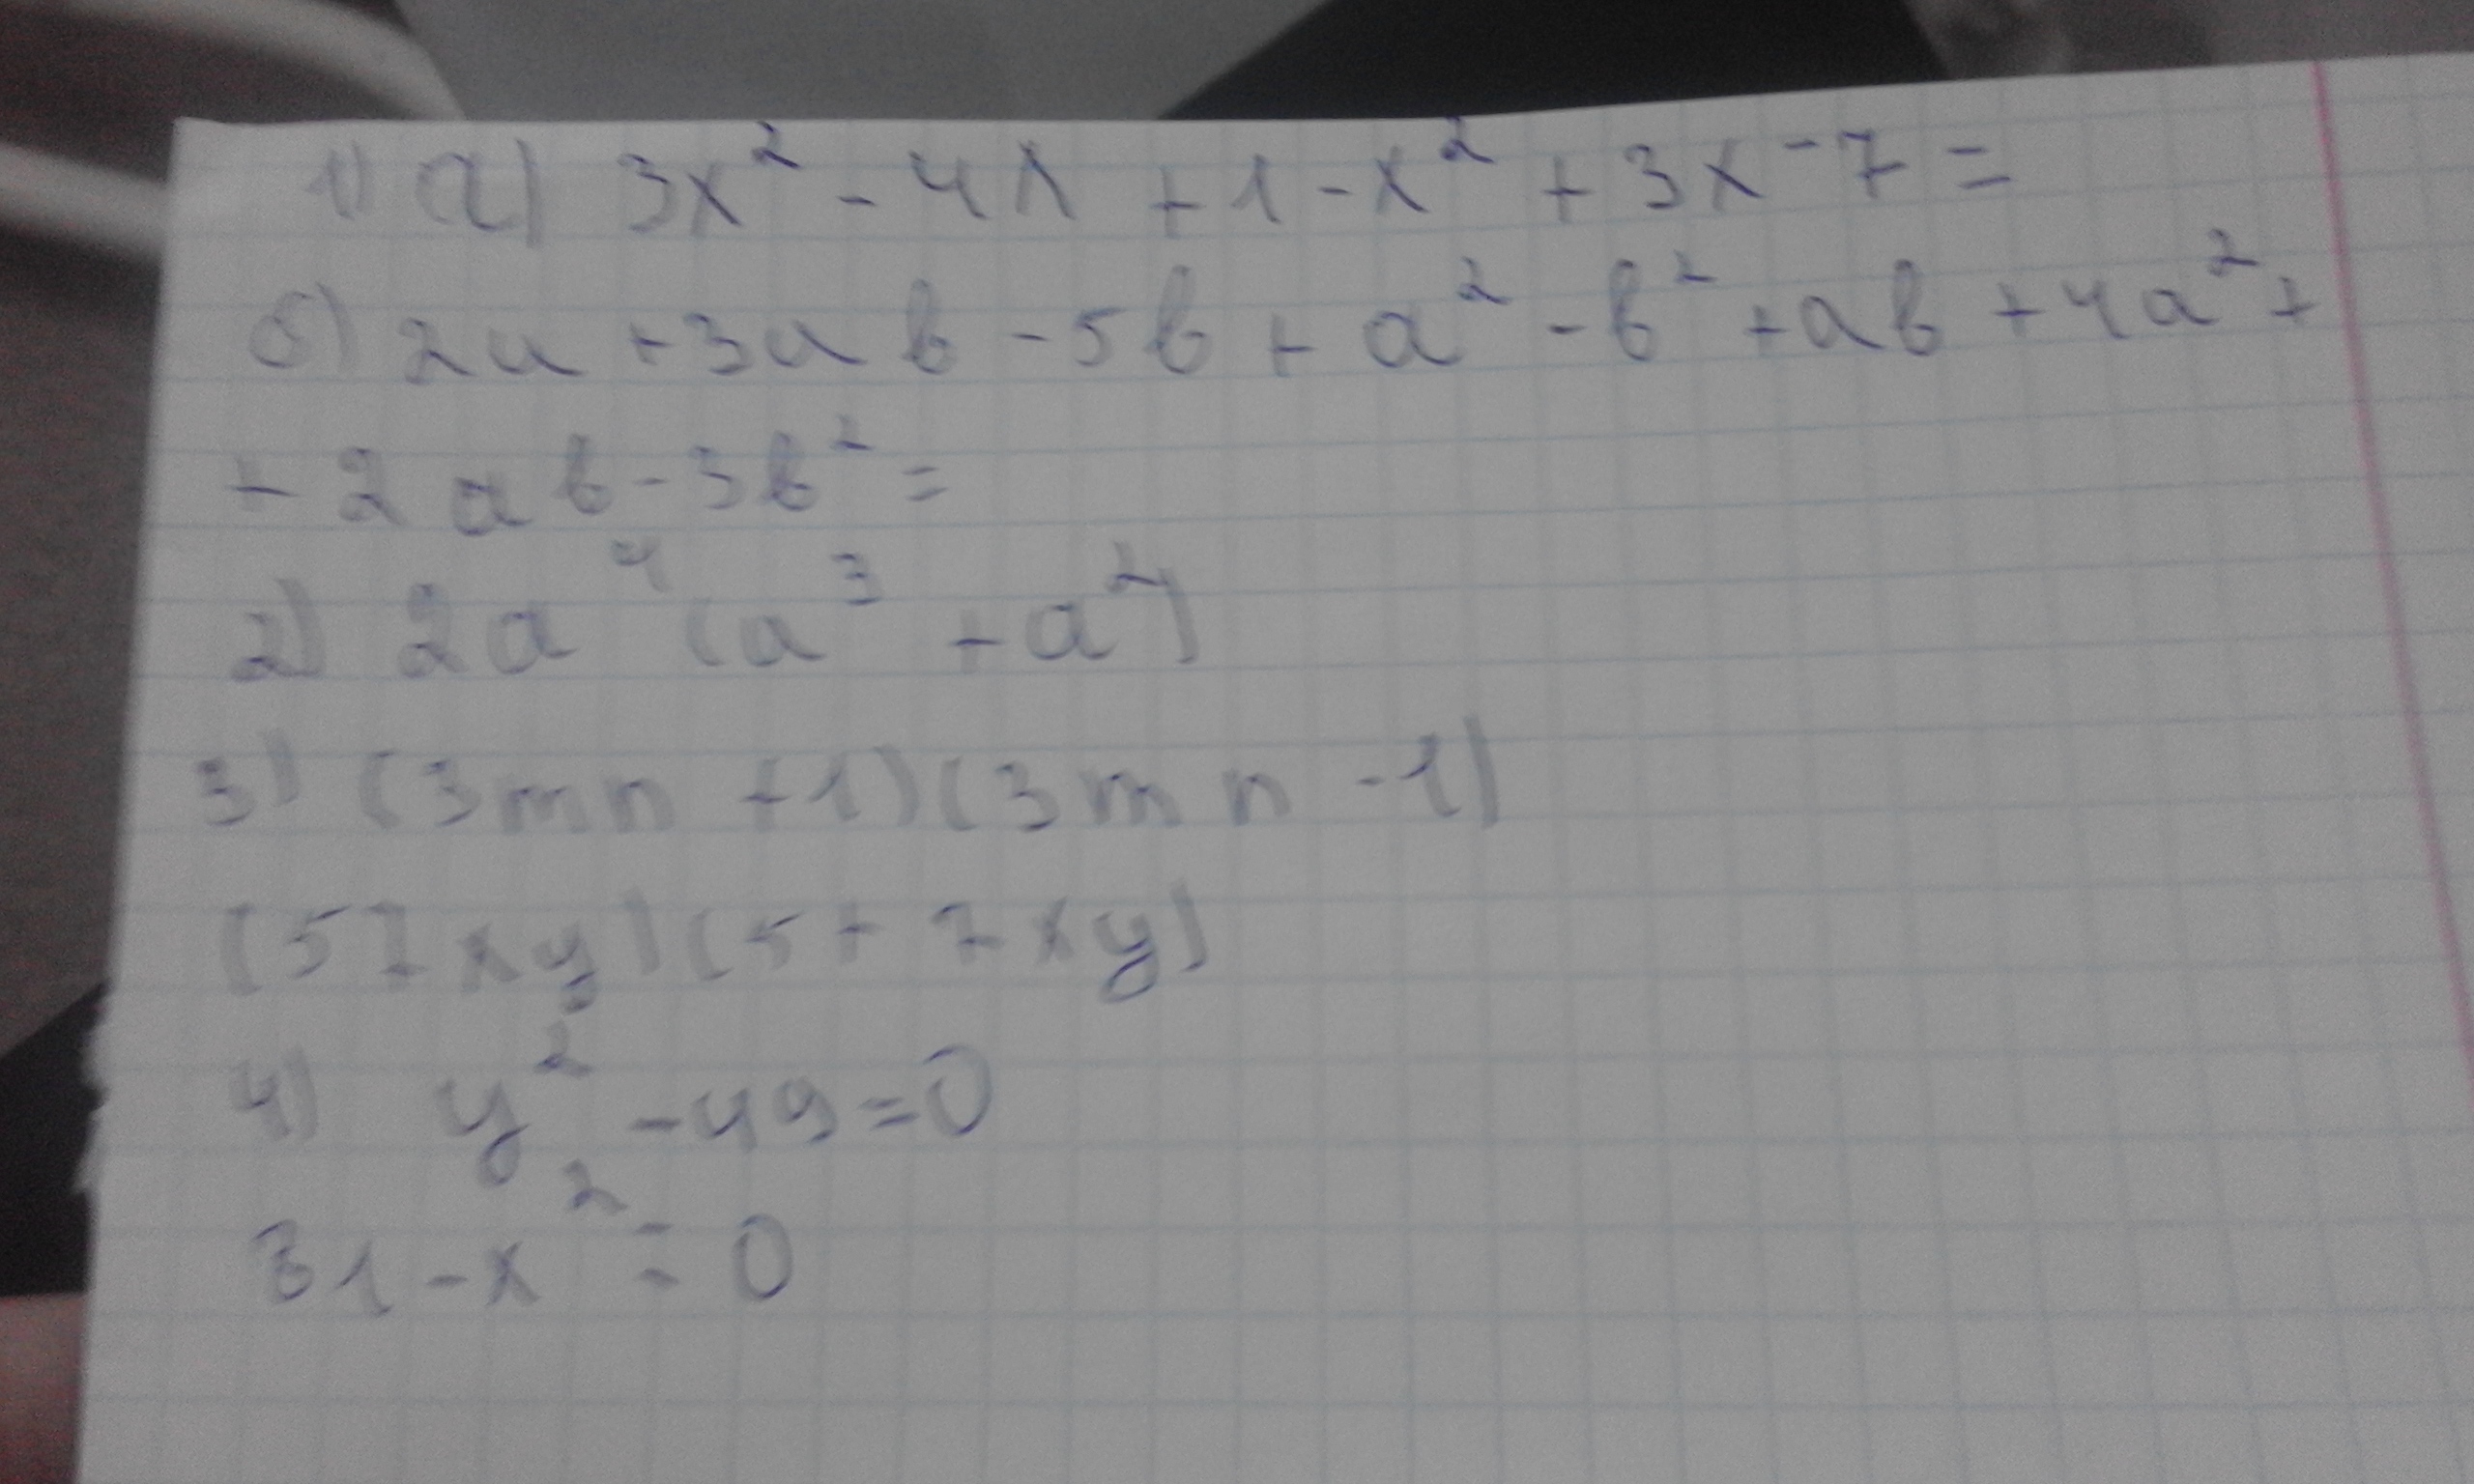 1) а) 3x² - 4x + 1 - x² + 3x - 7 =
б) 2a + 3ab - 5b + a² - b² + ab + 4a² +
+ 2ab - 3b² =
2) 2a⁴ (a³ + a²)
3) (3mn + 1) (3mn - 1)
(57xy) (5 + 7xy)
4) y² - 49 = 0
31 - x² = 0